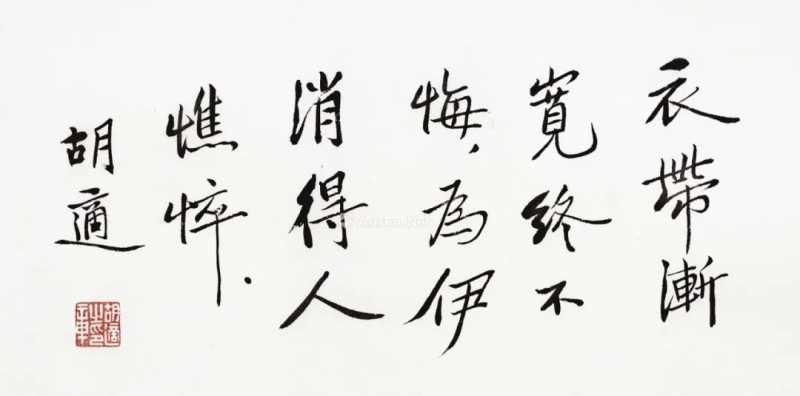 衣帶漸
寬終不
悔，為伊
消得人
憔悴．
胡適
胡適之印章
Artron.Net